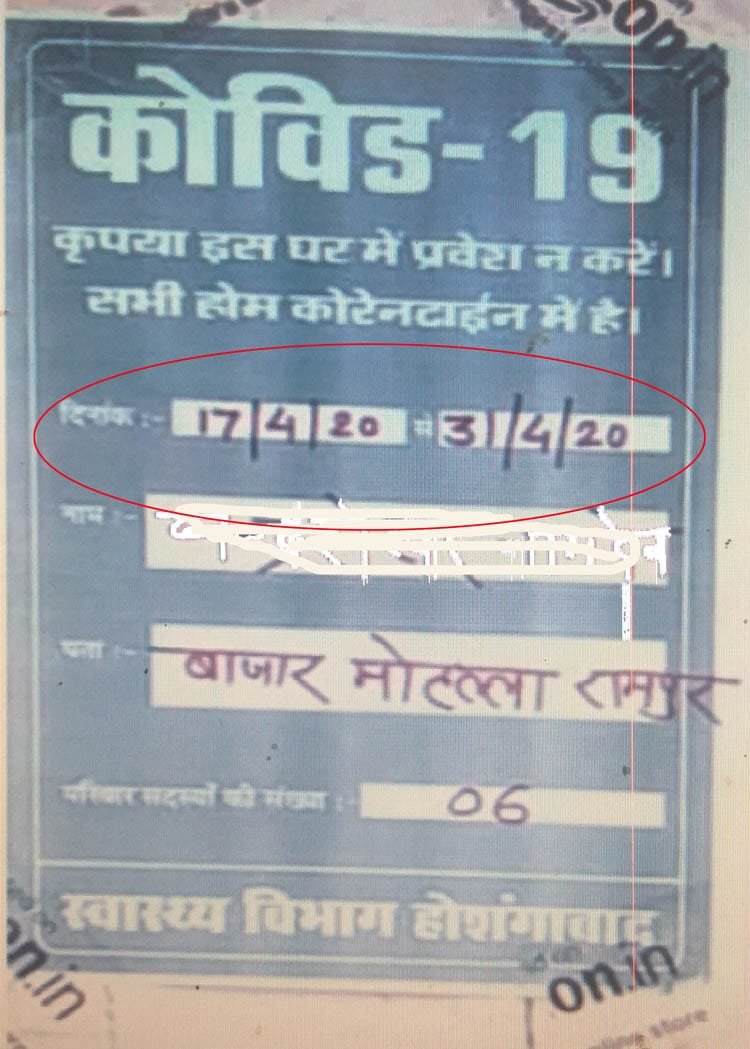 on.in
कोविड-19
कृपया इस घर में प्रवेश न करें।
सभी होम कोरेनटाईन में है।
दिनांक :- 17/4/20 से 31/4/20
नाम :-
पता :- बाजार मोहल्ला रामपुर
परिवार सदस्यों की संख्या :- 06
स्वास्थ्य विभाग होशंगाबाद
on.in
on.in
store